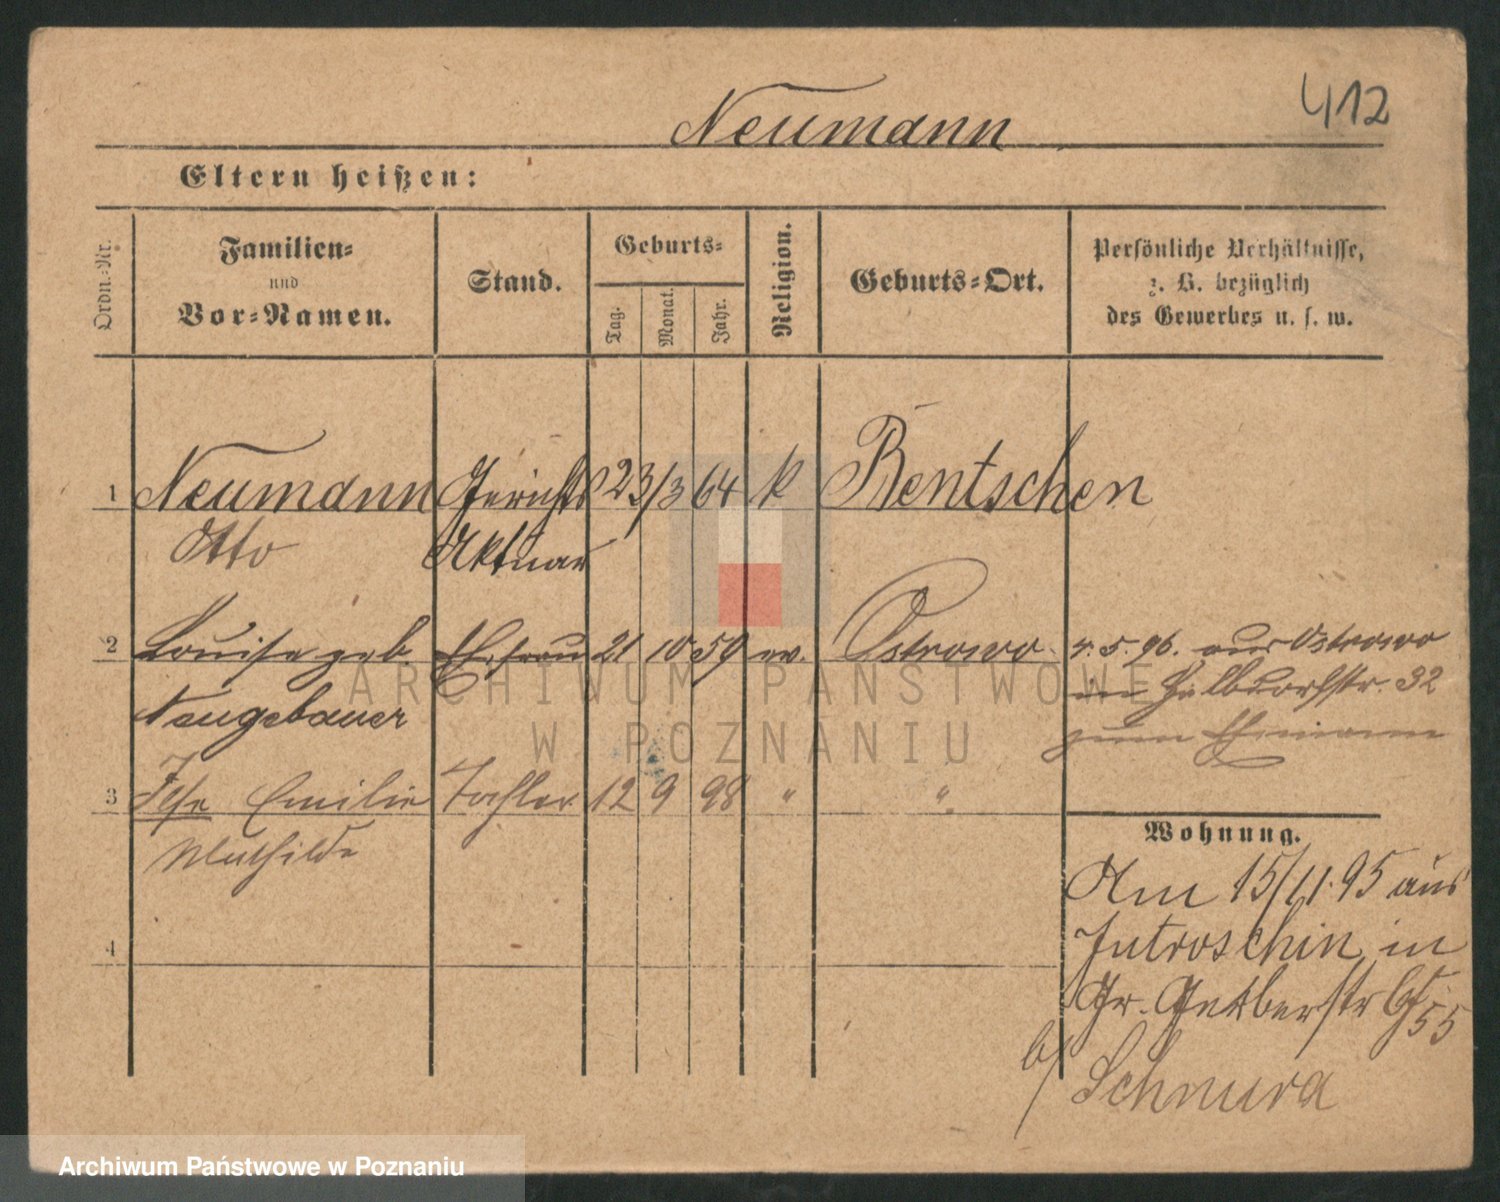 412
Neumann
Eltern heißen:
Ordn.-Nr.
Familien-
und
Vor-Namen.
Stand.
Geburts-
Tag.
Monat.
Jahr.
Religion.
Geburts-Ort.
Persönliche Verhältnisse,
z. B. bezüglich
des Gewerbes u. s. w.
1 Neumann Gerichts 23/3 64 k Bentschen
Otto Aktuar
2 Louise geb. Ehefrau 21 10 59 ev. Ostrowo 5. 96. aus Ostrowo
in Halbdorfstr. 32
Neugebauer zum Ehemann
3 Ilse Emilie Tochter 12 9 98 " "
Mathilde
Wohnung.
Am 15/11. 95 aus
4 Jutroschin in
Gr. Gerberstr 55
b/ Schnura
ARCHIWUM PAŃSTWOWE
W POZNANIU
Archiwum Państwowe w Poznaniu